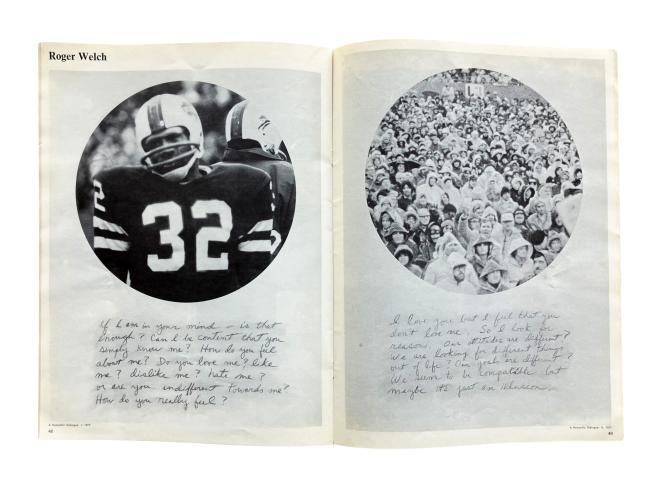 Roger Welch
32
32
If I am in your mind – is that
enough? Can I be content that you
simply know me? How do you feel
about me? Do you love me? like
me? dislike me? hate me?
or are you indifferent towards me?
How do you really feel?
A Romantic Dialogue
42
I love you but I feel that you
don't love me. So I look for
reason. Our attitudes are different?
We are looking for different things
out of life? Our goals are different?
We seem to be compatible but
maybe it's just an illusion
A Romantic Dialogue
43